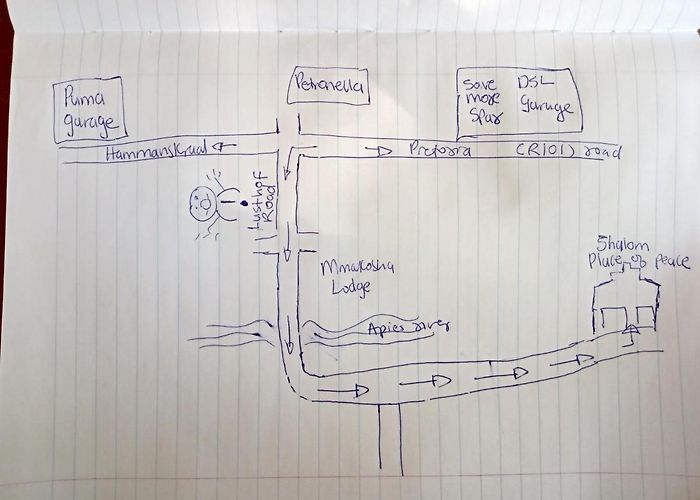 Petronella
Puma
garage
Save
more
Spar
DSL
Garage
Hammanskraal
Pretoria (R101) road
Lusthof
Road
Shalom
Place of peace
Mmakosha
Lodge
Apies river